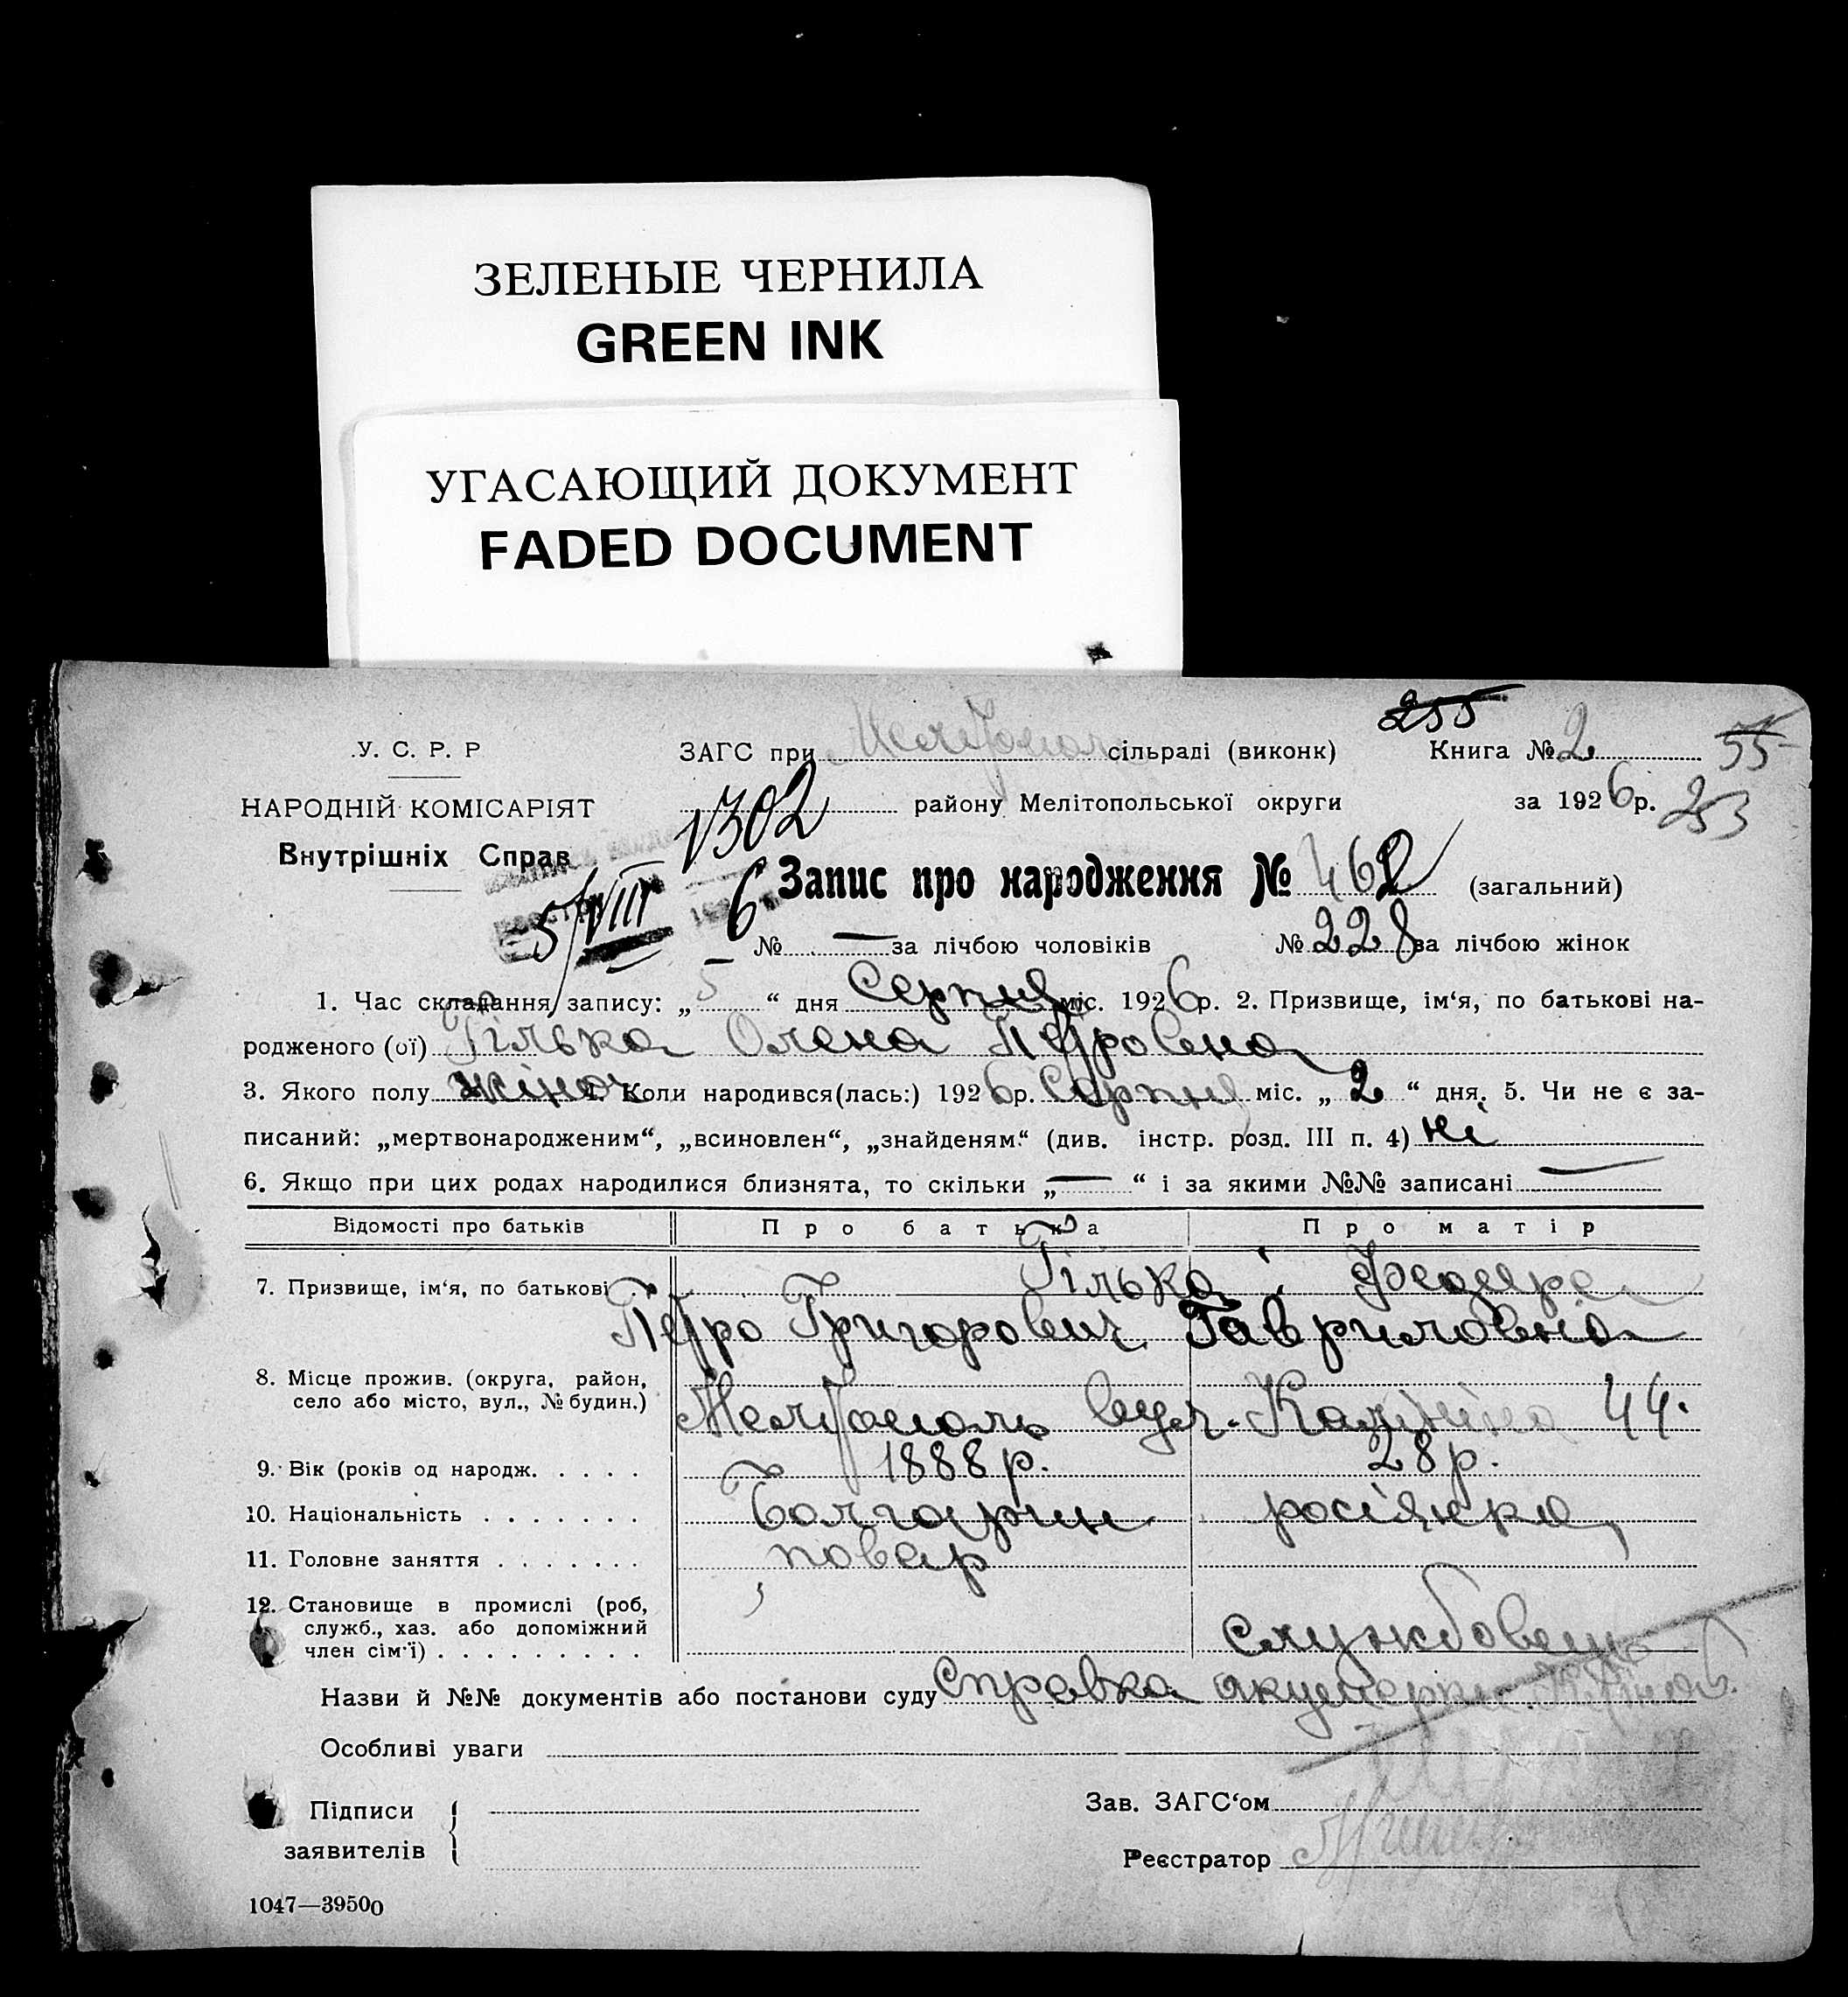 ЗЕЛЕНЫЕ ЧЕРНИЛА
GREEN INK
УГАСАЮЩИЙ ДОКУМЕНТ
FADED DOCUMENT
255
У. С. Р. Р ЗАГС при Мелітопол сільраді (виконк) Книга № 2 55
НАРОДНІЙ КОМІСАРІЯТ району Мелітопольської округи за 1926 р. 253
1302
Внутрішніх Справ
6 Запис про народження № 462 (загальний)
5/VIII
№ — за лічбою чоловіків № 228 за лічбою жінок
1. Час складання запису: „ 5 “ дня Серпня міс. 1926 р. 2. Призвище, ім‘я, по батькові на-
родженого (ої) Гілька Олена Петровна
3. Якого полу жіноч 4. Коли народився(лась:) 1926 р. Серпня міс. „ 2 “ дня. 5. Чи не є за-
писаний: „мертвонародженим“, „всиновлен“, „знайденям“ (див. інстр. розд. III п. 4) ні
6. Якщо при цих родах народилися близнята, то скільки „ — “ і за якими №№ записані —
Відомості про батьків Про батька Про матір
7. Призвище, ім‘я, по батькові Гілька
Петро Григорович Гавриловна
8. Місце прожив. (округа, район,
село або місто, вул., № будин.) Мелітополь вул. Калініна 44.
9. Вік (років од народж. . . . . 1888 р. 28 р.
10. Національність . . . . . . . Болгарин росіянка
11. Головне заняття . . . . . . . повар
12. Становище в промислі (роб,
служб., хаз. або допоміжний
член сім‘ї) . . . . . . . . . службовець
Назви й №№ документів або постанови суду Справка акушерки
Особливі уваги
Підписи Зав. ЗАГС‘ом
заявителів Реєстратор
1047—39500